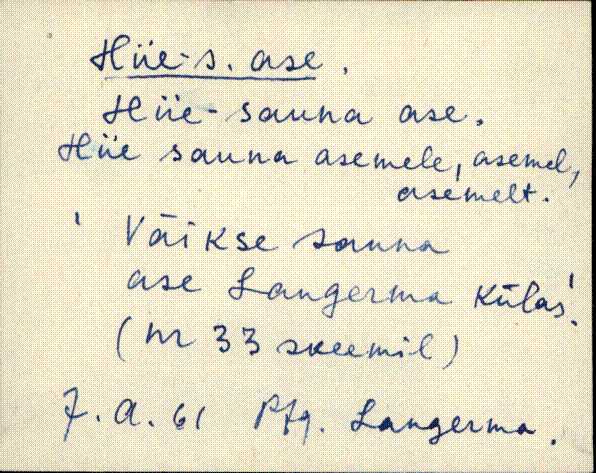 Hiie-s. ase.
Hiie-sauna ase.
Hiie sauna asemele, asemel,
asemelt.
' Väikse sauna
ase Langerma külas'.
(nr 33 skeemil)
7. A. 61 Pfg. Langerma.